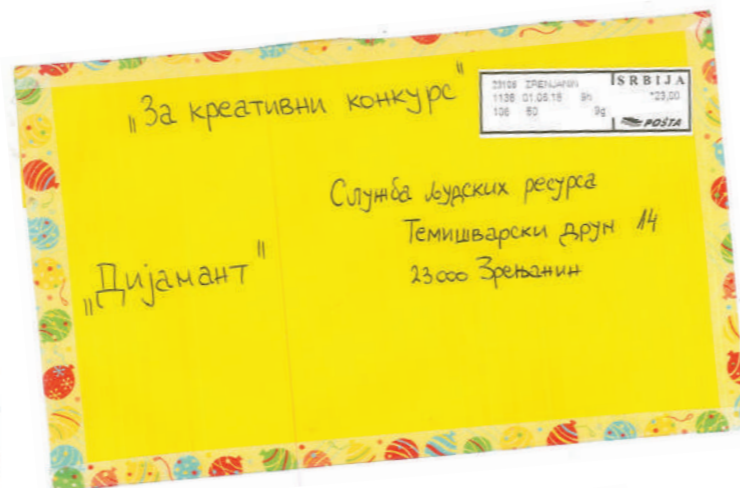 „За креативни конкурс"
23106 ZRENJANIN SRBIJA
1138 01.06.18 9h *23,00
106 60 9g POŠTA
Служба људских ресурса
Темишварски друм 14
23000 Зрењанин
„Дијамант"